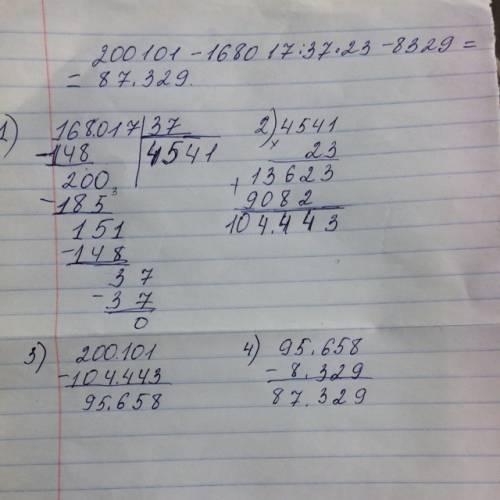 200101-168017:37·23-8329=
=87.329.
1) 168.017 | 37
-148 | 4541
200
-185
151
-148
37
-37
0
2) 4541
× 23
+13623
9082
104.443
3) 200.101
-104.443
95.658
4) 95.658
-8.329
87.329